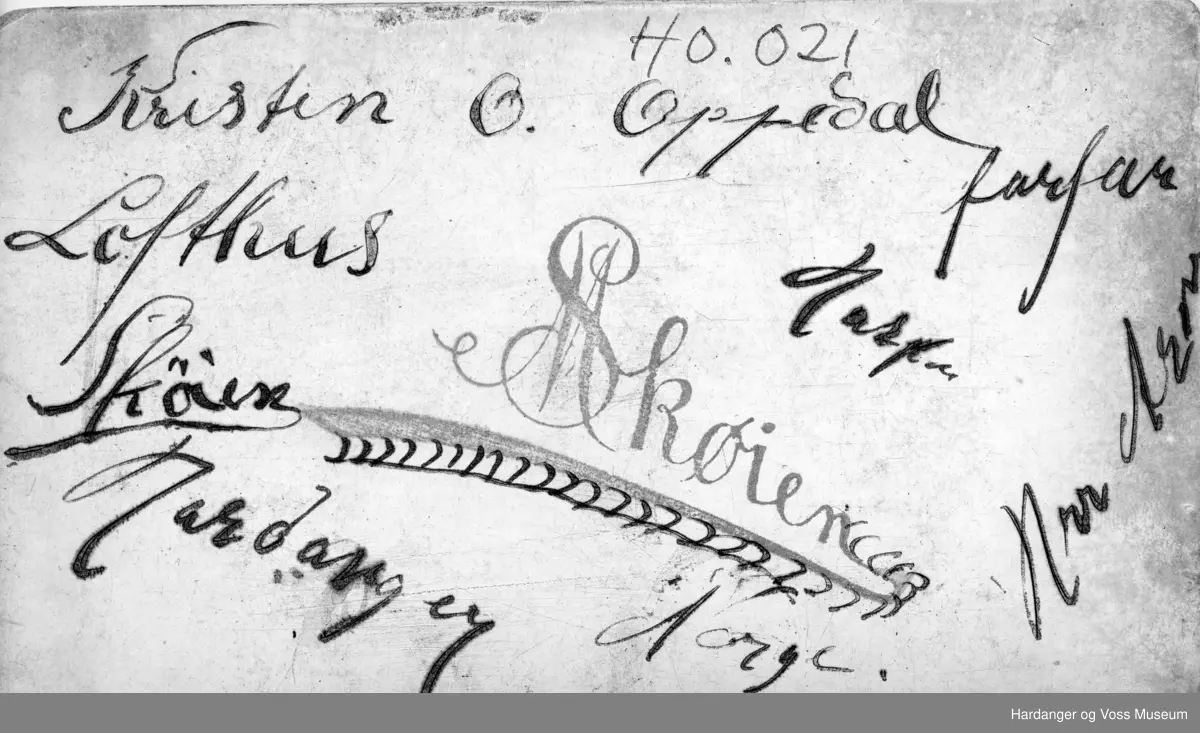 HO.021
Kristen O. Oppedal
farfar
Lofthus
Skøien
Sköien
Hardanger
Norge.
Hardanger og Voss Museum